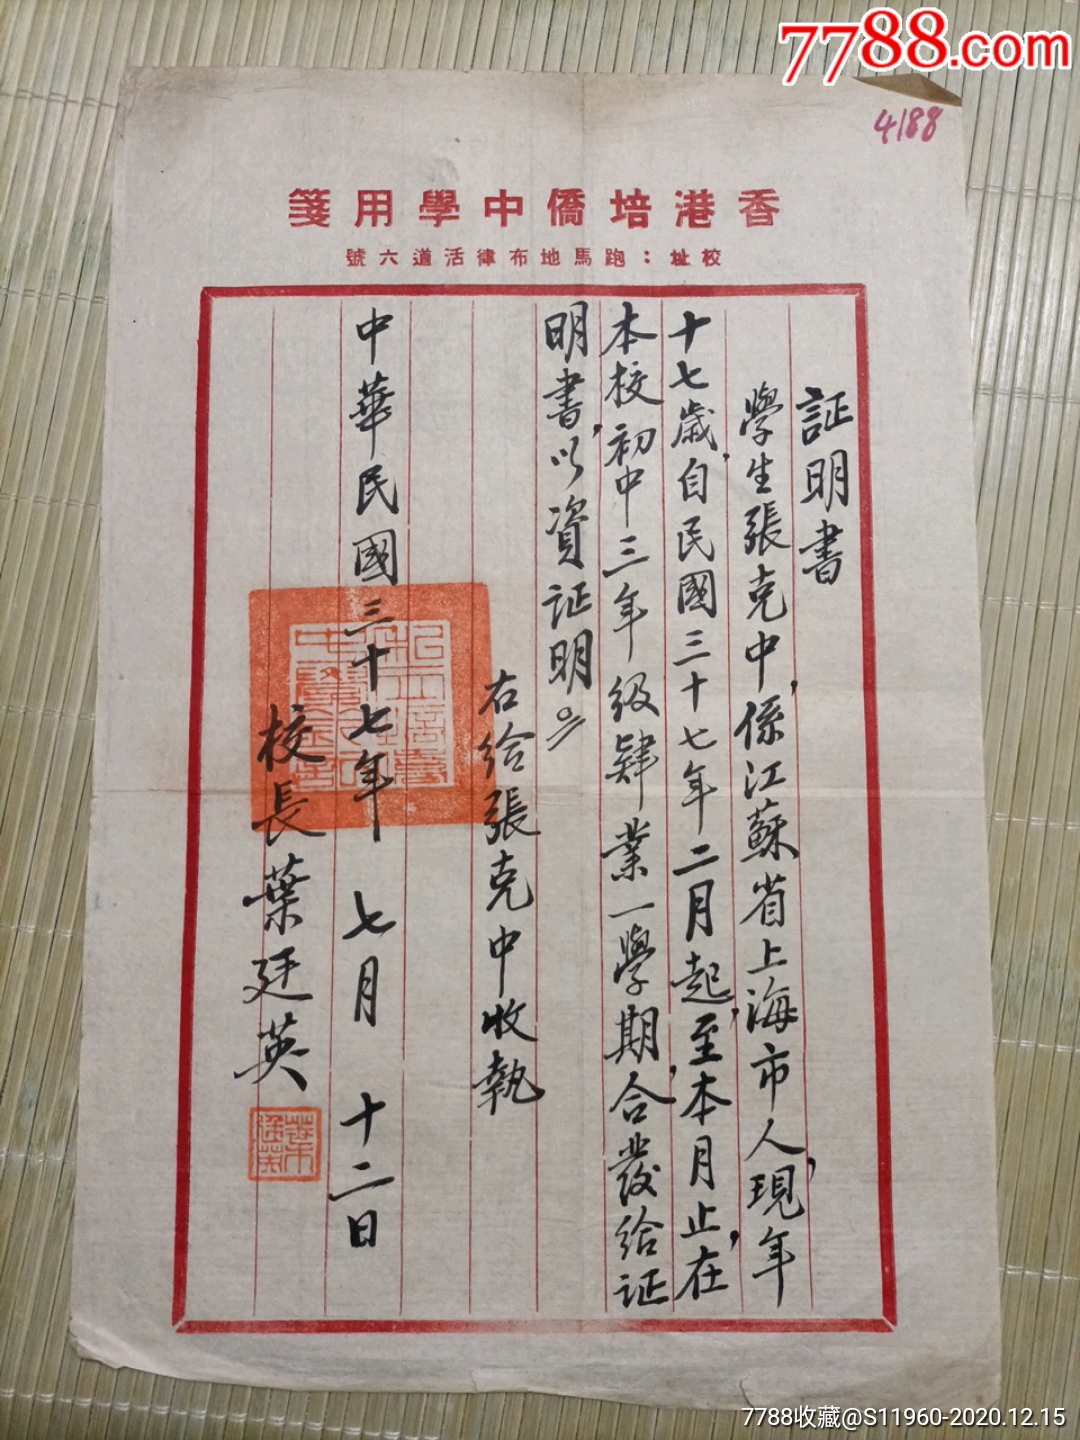 7788.com
4188
香港培僑中學用箋
校址：跑馬地布律活道六號
証明書
學生張克中，係江蘇省上海市人，現年
十七歲，自民國三十七年二月起，至本月止，在
本校初中三年級肄業一學期，合發給证
明書，以資证明。
右給張克中收執
中華民國三十七年七月十二日
校長葉廷英
7788收藏@S11960-2020.12.15